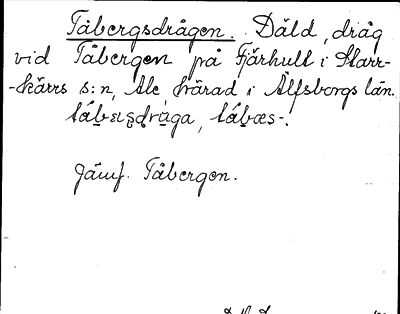 Tåbergsdrågen. Däld, dråg
vid Tåbergen på Fjärhult i Starr-
-kärrs s:n, Ale härad i Älfsborgs län.
Jämf. Tåbergen.